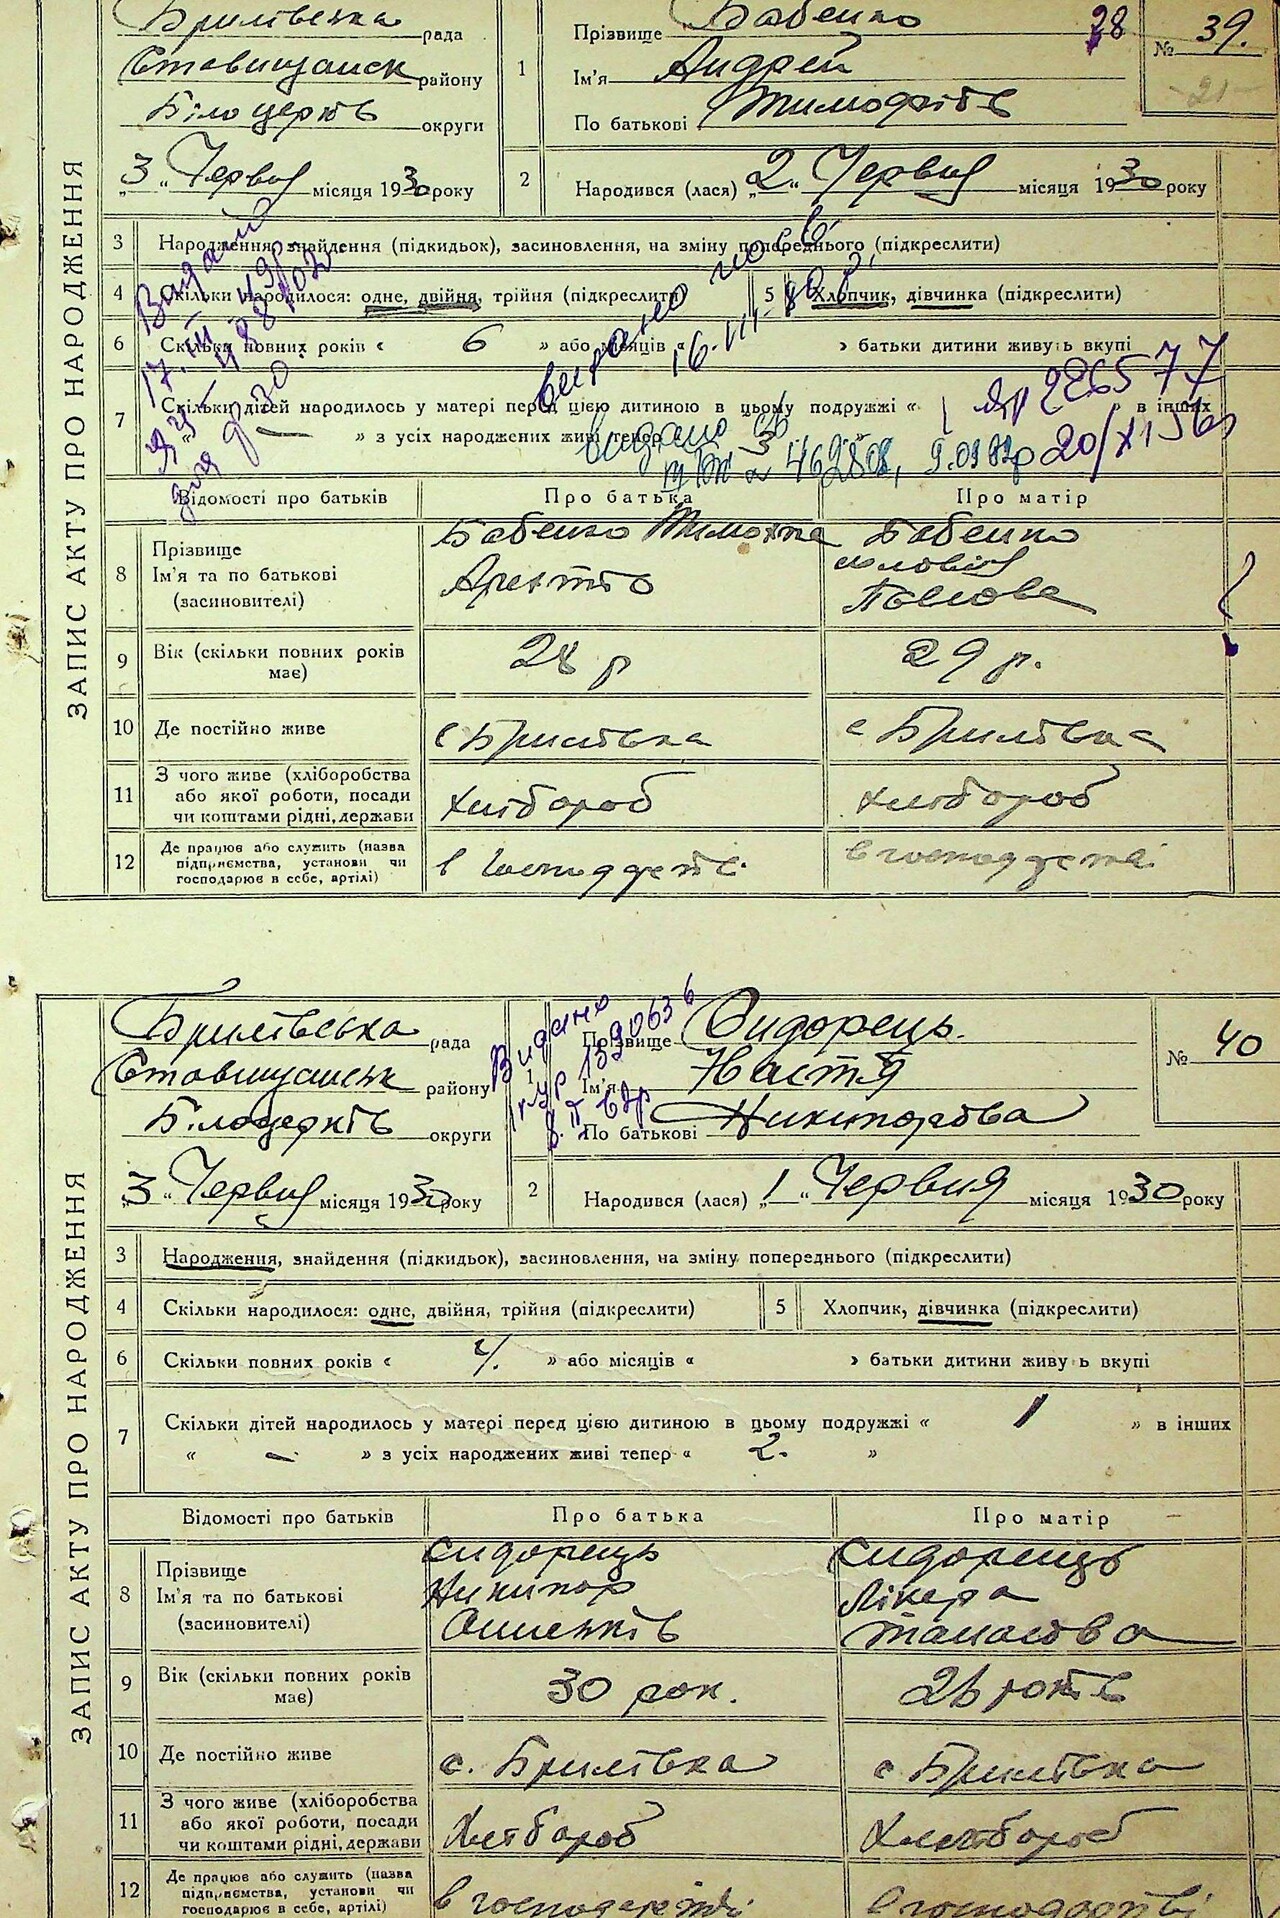 ЗАПИС АКТУ ПРО НАРОДЖЕННЯ
Брилівська рада
Ставищанськ району
Білоцерків округи
„3“ Червня місяця 1930 року
1 Прізвище Бабенко 28
Ім'я Андрей
По батькові Тимофіїв
№ 39.
-21-
2 Народився (лася) „2“ Червня місяця 1930 року
3 Народження, знайдення (підкидьок), засиновлення, на зміну попереднього (підкреслити)
4 Скільки народилося: одне, двійня, трійня (підкреслити)
5 Хлопчик, дівчинка (підкреслити)
6 Скільки повних років « 6 » або місяців « » батьки дитини живуть вкупі
7 Скільки дітей народилось у матері перед цією дитиною в цьому подружжі « в інших
« — » з усіх народжених живі тепер 3
17.III
16.VII-
226577
20/XI 56
462808, 9.
Відомості про батьків Про батька Про матір
8 Прізвище
Ім'я та по батькові
(засиновителі)
Бабенко Тимохтей
Бабенко
9 Вік (скільки повних років має) 28 р 29 р.
10 Де постійно живе с Брилівка с Брилівка
11 З чого живе (хліборобства
або якої роботи, посади
чи коштами рідні, держави
Хлібороб хлібороб
12 Де працює або служить (назва
підприємства, установи чи
господарює в себе, артілі)
в господарстві в господарстві
ЗАПИС АКТУ ПРО НАРОДЖЕННЯ
Брилівська рада
Ставищанськ району
Білоцерків округи
„3“ Червня місяця 1930 року
Видано
1 Прізвище Сидорець.
Ім'я Настя
По батькові Никипорова
№ 40
2 Народився (лася) „1“ Червня 1930 року
3 Народження, знайдення (підкидьок), засиновлення, на зміну попереднього (підкреслити)
4 Скільки народилося: одне, двійня, трійня (підкреслити)
5 Хлопчик, дівчинка (підкреслити)
6 Скільки повних років « 4. » або місяців « » батьки дитини живуть вкупі
7 Скільки дітей народилось у матері перед цією дитиною в цьому подружжі « 1 » в інших
« — » з усіх народжених живі тепер « 2. »
Відомості про батьків Про батька Про матір
8 Прізвище
Ім'я та по батькові
(засиновителі)
Сидорець
Никипор
Сидорець
Лікера
Танасова
9 Вік (скільки повних років має) 30 рок. 26 років
10 Де постійно живе с. Брилівка с Брилівка
11 З чого живе (хліборобства
або якої роботи, посади
чи коштами рідні, держави
Хлібороб Хлібороб
12 Де працює або служить (назва
підприємства, установи чи
господарює в себе, артілі)
в господарстві в господарстві